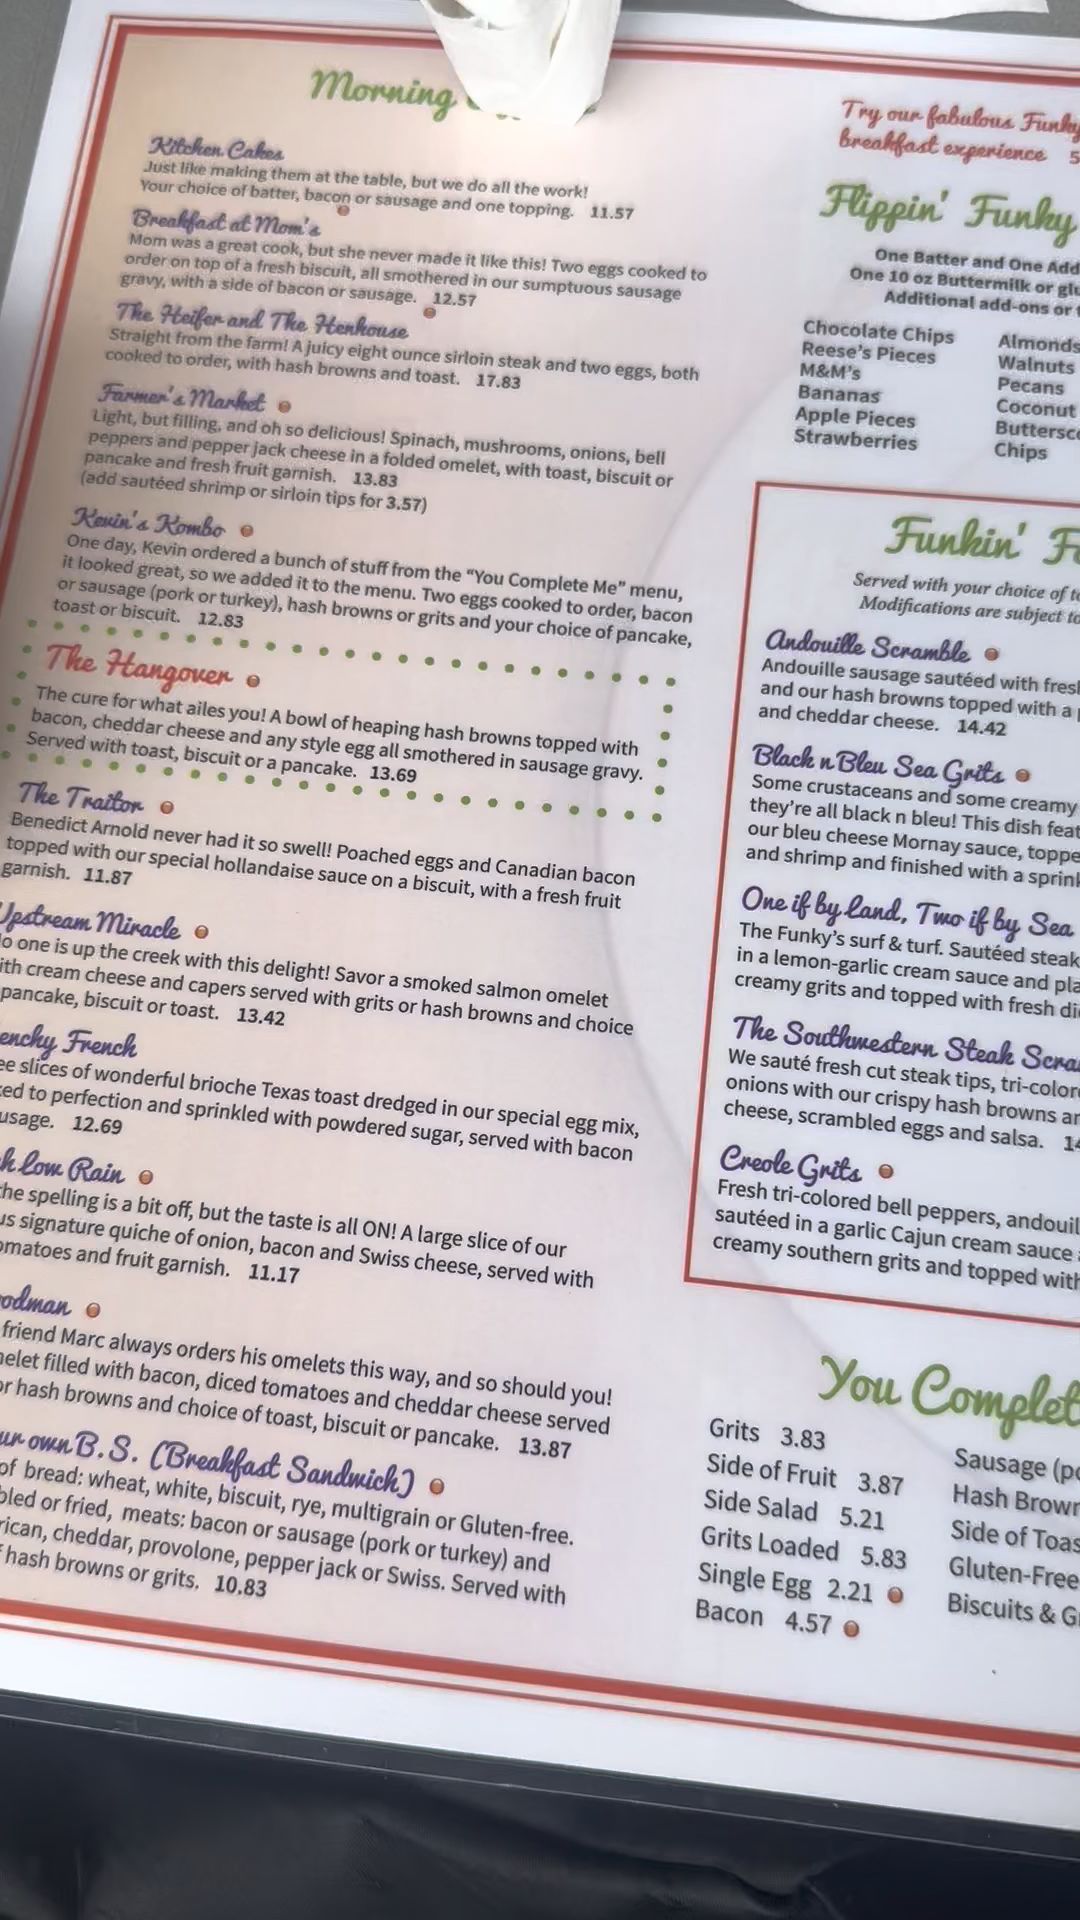 Morning
Kitchen Cakes
Just like making them at the table, but we do all the work!
Your choice of batter, bacon or sausage and one topping. 11.57
Breakfast at Mom's
Mom was a great cook, but she never made it like this! Two eggs cooked to
order on top of a fresh biscuit, all smothered in our sumptuous sausage
gravy, with a side of bacon or sausage. 12.57
The Heifer and The Henhouse
Straight from the farm! A juicy eight ounce sirloin steak and two eggs, both
cooked to order, with hash browns and toast. 17.83
Farmer's Market
Light, but filling, and oh so delicious! Spinach, mushrooms, onions, bell
peppers and pepper jack cheese in a folded omelet, with toast, biscuit or
pancake and fresh fruit garnish. 13.83
(add sautéed shrimp or sirloin tips for 3.57)
Kevin's Kombo
One day, Kevin ordered a bunch of stuff from the “You Complete Me” menu,
it looked great, so we added it to the menu. Two eggs cooked to order, bacon
or sausage (pork or turkey), hash browns or grits and your choice of pancake,
toast or biscuit. 12.83
The Hangover
The cure for what ailes you! A bowl of heaping hash browns topped with
bacon, cheddar cheese and any style egg all smothered in sausage gravy.
Served with toast, biscuit or a pancake. 13.69
The Traitor
Benedict Arnold never had it so swell! Poached eggs and Canadian bacon
topped with our special hollandaise sauce on a biscuit, with a fresh fruit
garnish. 11.87
Upstream Miracle
o one is up the creek with this delight! Savor a smoked salmon omelet
ith cream cheese and capers served with grits or hash browns and choice
pancake, biscuit or toast. 13.42
enchy French
ee slices of wonderful brioche Texas toast dredged in our special egg mix,
ed to perfection and sprinkled with powdered sugar, served with bacon
usage. 12.69
h Low Rain
he spelling is a bit off, but the taste is all ON! A large slice of our
us signature quiche of onion, bacon and Swiss cheese, served with
omatoes and fruit garnish. 11.17
odman
friend Marc always orders his omelets this way, and so should you!
elet filled with bacon, diced tomatoes and cheddar cheese served
or hash browns and choice of toast, biscuit or pancake. 13.87
ur own B.S. (Breakfast Sandwich)
of bread: wheat, white, biscuit, rye, multigrain or Gluten-free.
bled or fried, meats: bacon or sausage (pork or turkey) and
rican, cheddar, provolone, pepper jack or Swiss. Served with
f hash browns or grits. 10.83
Try our fabulous Funky
breakfast experience 5
Flippin' Funky
One Batter and One Add
One 10 oz Buttermilk or glu
Additional add-ons or
Chocolate Chips
Reese's Pieces
M&M's
Bananas
Apple Pieces
Strawberries
Almonds
Walnuts
Pecans
Coconut
Buttersc
Chips
Funkin' F
Served with your choice of to
Modifications are subject to
Andouille Scramble
Andouille sausage sautéed with fresh
and our hash browns topped with a
and cheddar cheese. 14.42
Black n Bleu Sea Grits
Some crustaceans and some creamy
they're all black n bleu! This dish feat
our bleu cheese Mornay sauce, toppe
and shrimp and finished with a sprink
One if by Land, Two if by Sea
The Funky's surf & turf. Sautéed steak
in a lemon-garlic cream sauce and pla
creamy grits and topped with fresh di
The Southwestern Steak Scra
We sauté fresh cut steak tips, tri-colore
onions with our crispy hash browns an
cheese, scrambled eggs and salsa. 14
Creole Grits
Fresh tri-colored bell peppers, andouil
sautéed in a garlic Cajun cream sauce
creamy southern grits and topped with
You Complet
Grits 3.83
Side of Fruit 3.87
Side Salad 5.21
Grits Loaded 5.83
Single Egg 2.21
Bacon 4.57
Sausage (po
Hash Brown
Side of Toas
Gluten-Free
Biscuits & G